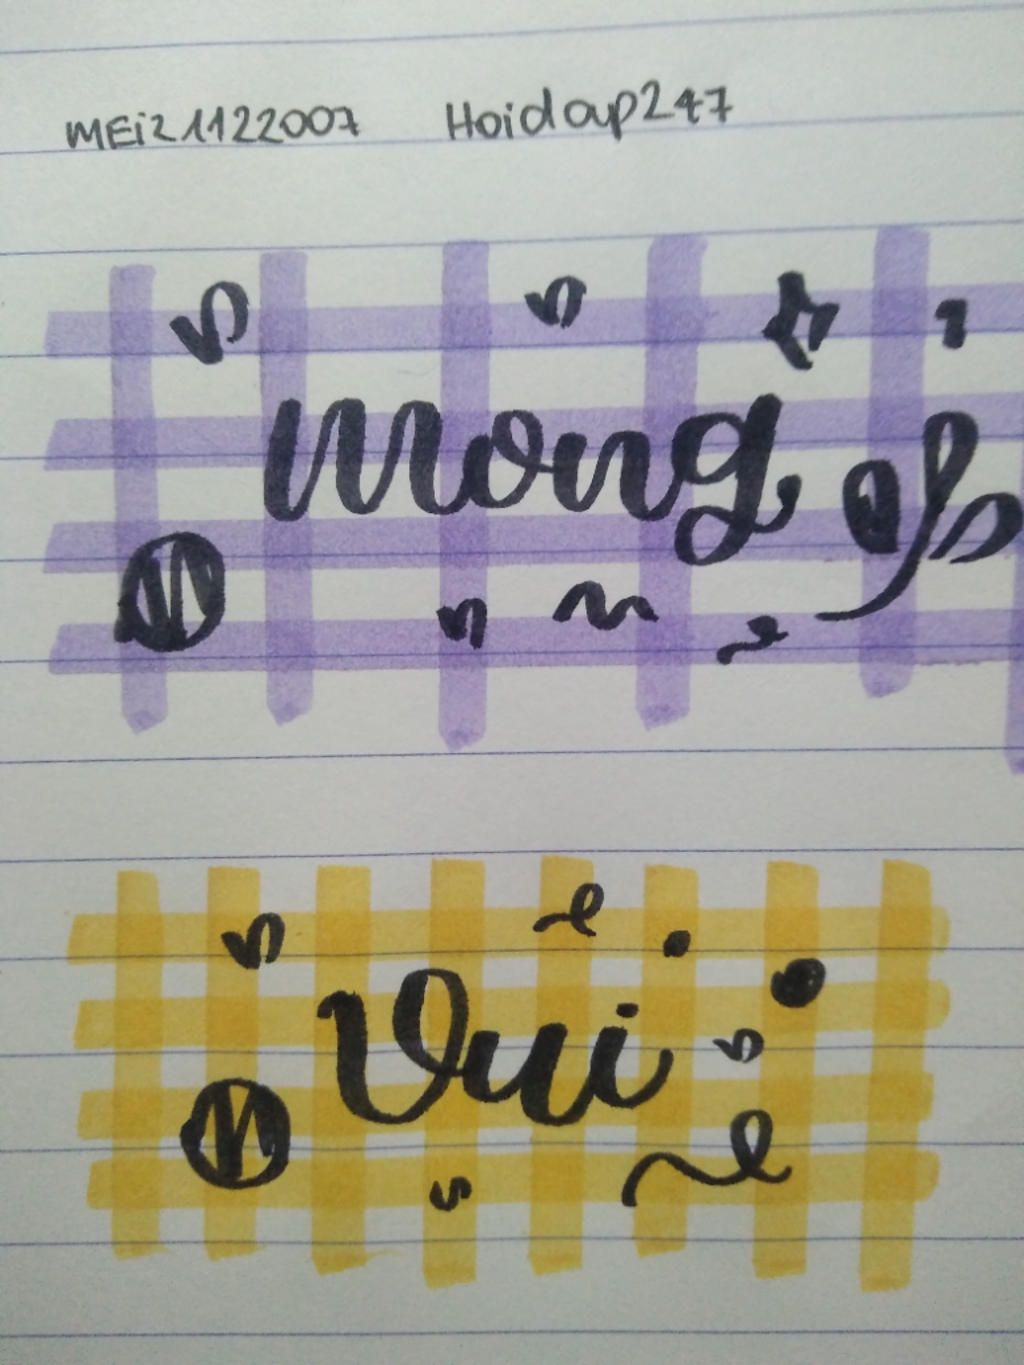 MEi21122007 Hoidap247
mong
Vui